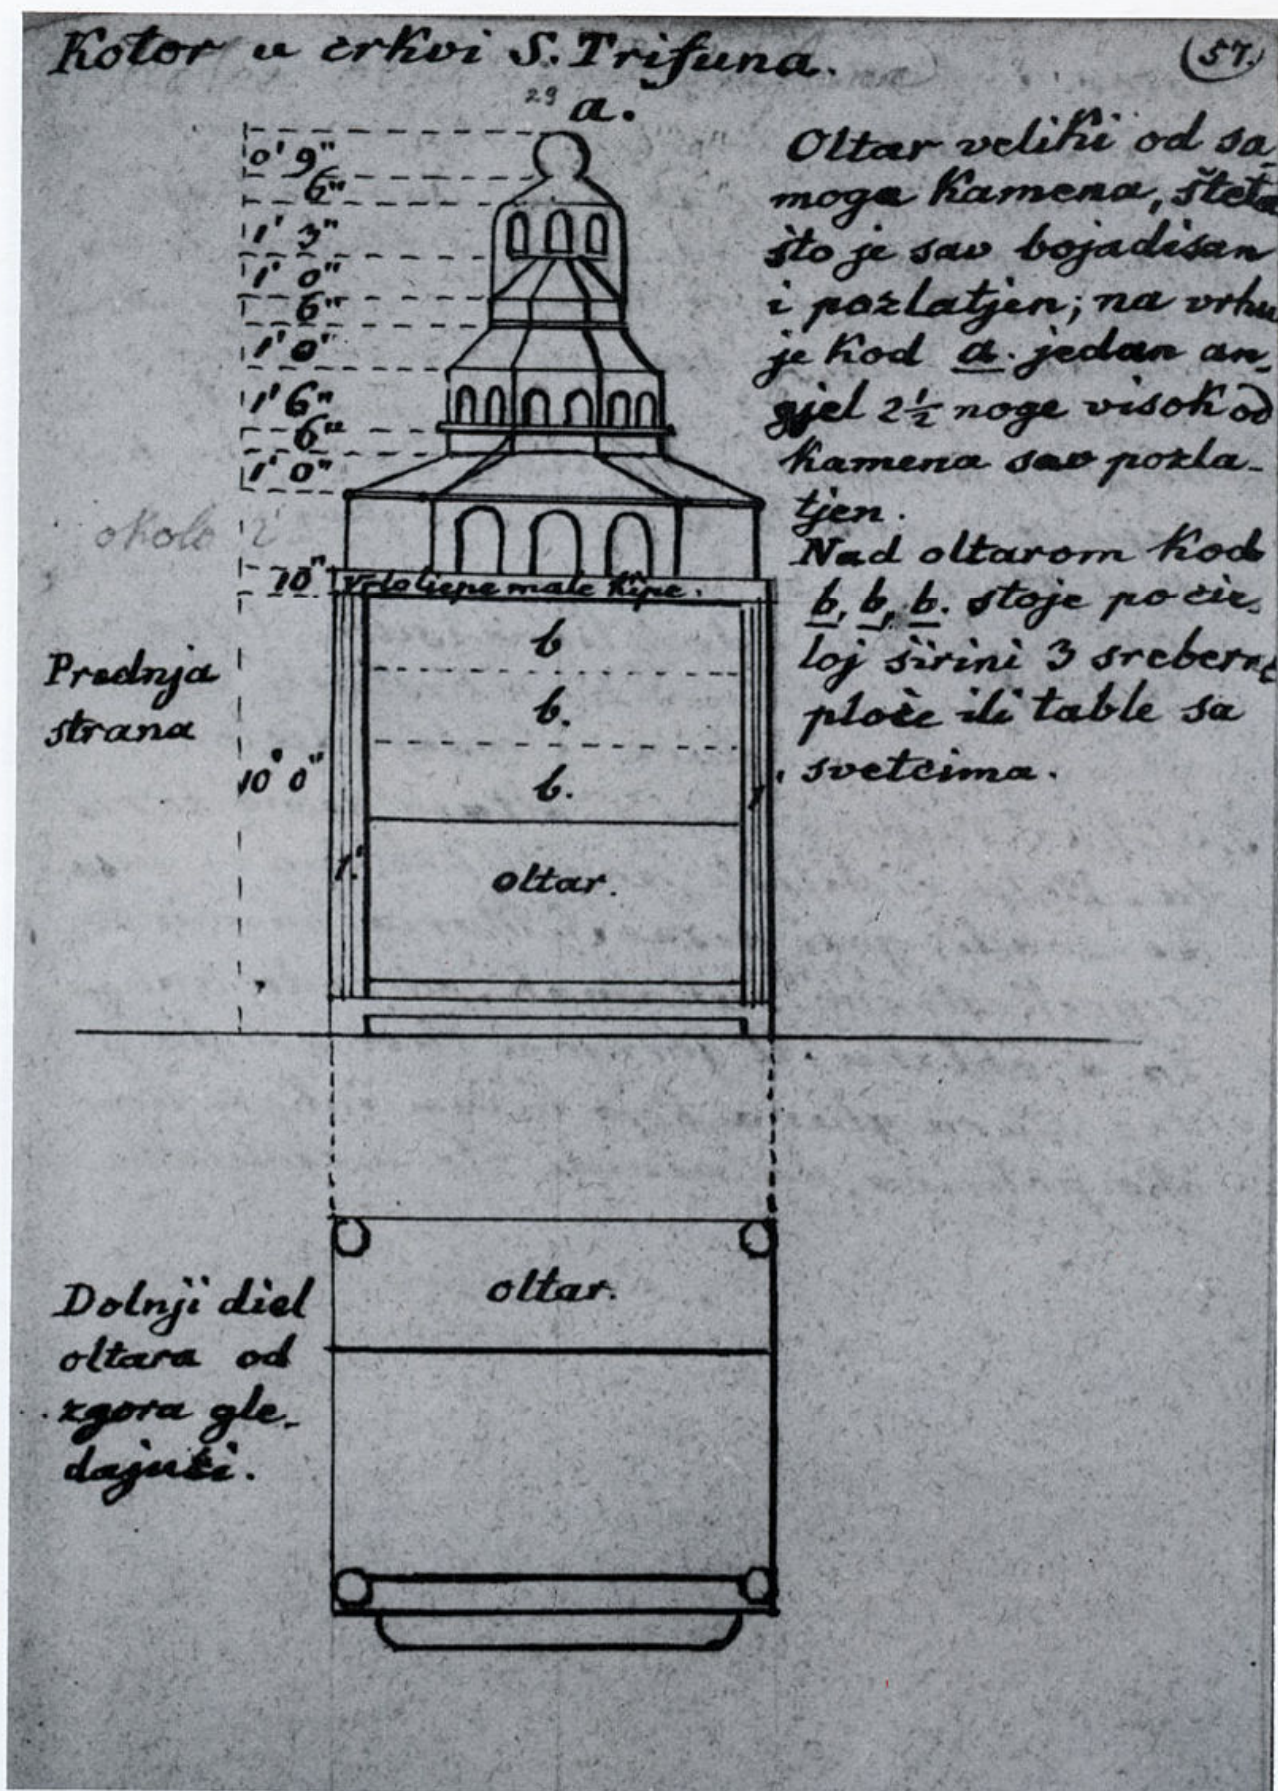 Kotor u crkvi S. Trifuna.
57.
29 a.
0' 9"
6"
1' 3"
1' 0"
6"
1' 0"
1' 6"
6"
1' 0"
okolo 2'
10"
Vrlo liepe male kipe.
Prednja
strana
10' 0"
b
b.
b.
1'
1'
oltar.
Oltar veliki od sa-
moga kamena, šteta
što je sav bojadisan
i pozlatjen; na vrhu
je kod a. jedan an-
gjel 2½ noge visok od
kamena sav pozla-
tjen.
Nad oltarom kod
b, b, b. stoje po cie-
loj širini 3 sreberne
ploče ili table sa
svetcima.
oltar.
Dolnji diel
oltara od
zgora gle-
dajući.